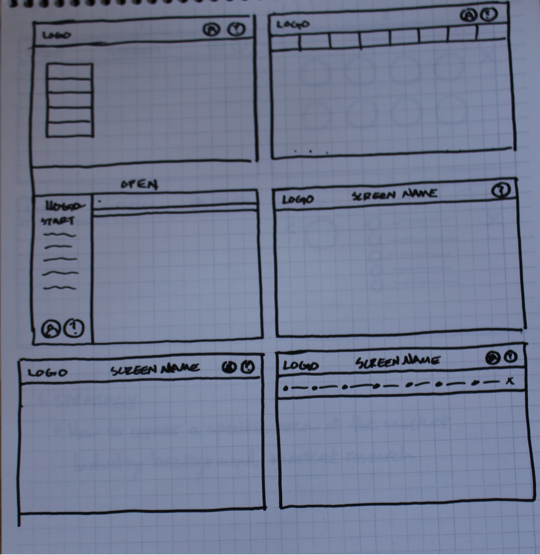 LOGO
LOGO
OPEN
LOGO
START
LOGO SCREEN NAME
LOGO SCREEN NAME
LOGO SCREEN NAME X